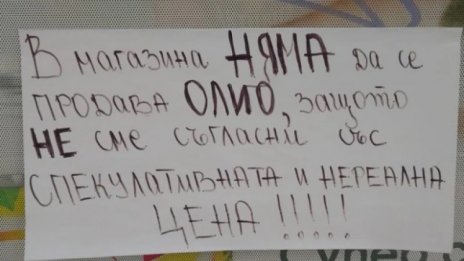 В магазина НЯМА да се
продава ОЛИО, защото
НЕ сме съгласни със
спекулативната и нереална
цена !!!!!
Супер